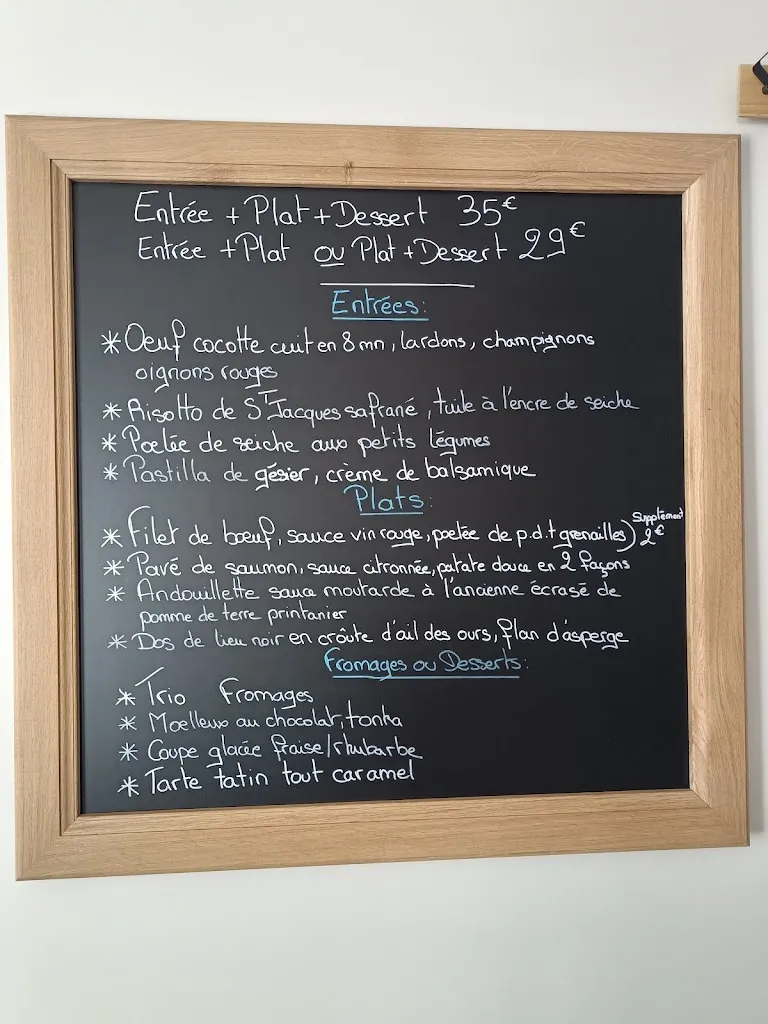 Entrée + Plat + Dessert 35€
Entrée + Plat ou Plat + Dessert 29€
Entrées:
* Oeuf cocotte cuit en 8 mn, lardons, champignons
oignons rouges
* Risotto de St Jacques safrané, tuile à l'encre de seiche
* Poelée de seiche aux petits légumes
* Pastilla de gésier, crème de balsamique
Plats:
* Filet de bœuf, sauce vin rouge, poelée de p.d.t grenailles) Supplément 2€
* Pavé de saumon, sauce citronnée, patate douce en 2 façons
* Andouillette sauce moutarde à l'ancienne écrasé de
pomme de terre printanier
* Dos de lieu noir en croûte d'ail des ours, flan d'asperge
Fromages ou Desserts:
* Trio Fromages
* Moelleux au chocolat, tonka
* Coupe glacée fraise/rhubarbe
* Tarte tatin tout caramel